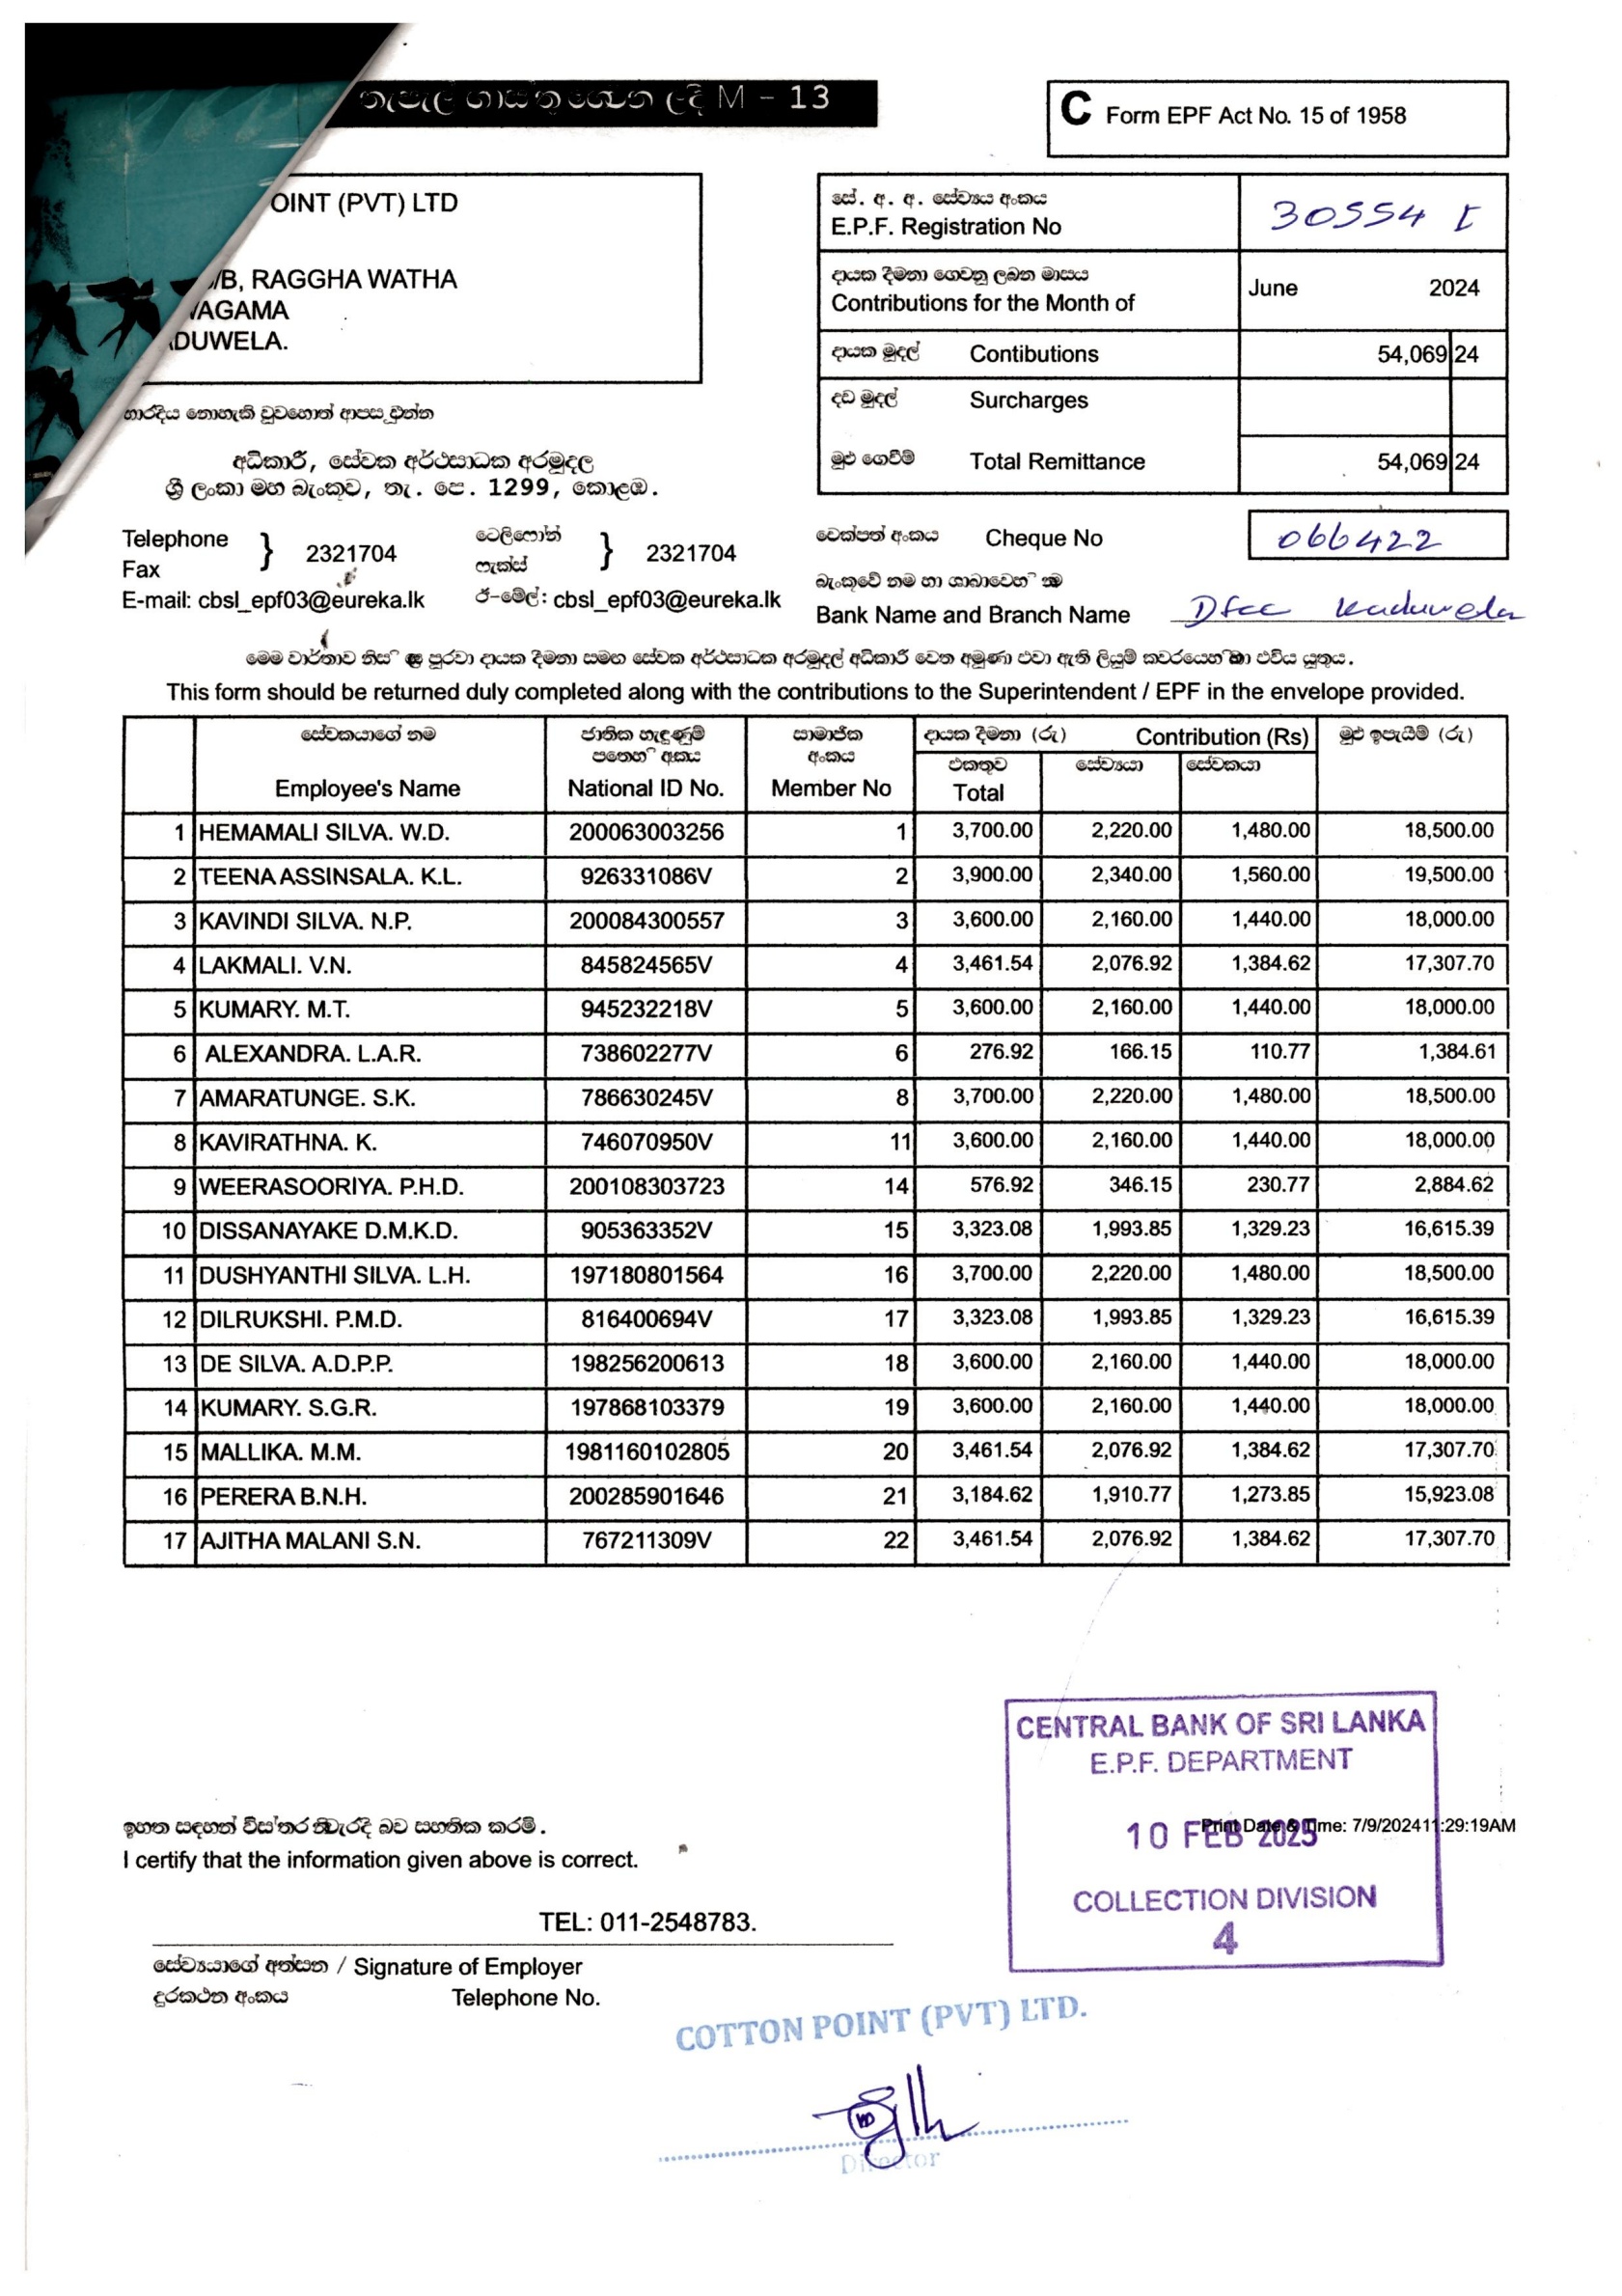 තැපැල් ගාස්තු ගෙවන ලදි M - 13
C Form EPF Act No. 15 of 1958
OINT (PVT) LTD
/B, RAGGHA WATHA
AGAMA
DUWELA.
සේ. අ. අ. සේව්‍යය අංකය
E.P.F. Registration No 30554 I
දායක දීමනා ගෙවනු ලබන මාසය
Contributions for the Month of June 2024
දායක මුදල් Contibutions 54,069 24
දඩ මුදල් Surcharges
මුළු ගෙවීම් Total Remittance 54,069 24
භාරදිය නොහැකි වුවහොත් ආපසු එන්න
අධිකාරී, සේවක අර්ථසාධක අරමුදල
ශ්‍රී ලංකා මහ බැංකුව, තැ. පෙ. 1299, කොළඹ.
Telephone
Fax } 2321704
ටෙලිෆෝන්
ෆැක්ස් } 2321704
E-mail: cbsl_epf03@eureka.lk ඊ-මේල්: cbsl_epf03@eureka.lk
චෙක්පත් අංකය Cheque No 066422
බැංකුවේ නම හා ශාඛාවෙහි නම
Bank Name and Branch Name Dfcc Kaduwela
මෙම වාර්තාව නිසි පුරවා දායක දීමනා සමඟ සේවක අර්ථසාධක අරමුදල් අධිකාරී වෙත අමුණා එවා ඇති ලියුම් කවරයෙහි එවිය යුතුය.
This form should be returned duly completed along with the contributions to the Superintendent / EPF in the envelope provided.
සේවකයාගේ නම ජාතික හැඳුණුම් පතෙහි අංකය සාමාජික අංකය දායක දීමනා (රු) Contribution (Rs) මුළු ඉපැයීම් (රු)
Employee's Name National ID No. Member No එකතුව Total සේව්‍යයා සේවකයා
1 HEMAMALI SILVA. W.D. 200063003256 1 3,700.00 2,220.00 1,480.00 18,500.00
2 TEENA ASSINSALA. K.L. 926331086V 2 3,900.00 2,340.00 1,560.00 19,500.00
3 KAVINDI SILVA. N.P. 200084300557 3 3,600.00 2,160.00 1,440.00 18,000.00
4 LAKMALI. V.N. 845824565V 4 3,461.54 2,076.92 1,384.62 17,307.70
5 KUMARY. M.T. 945232218V 5 3,600.00 2,160.00 1,440.00 18,000.00
6 ALEXANDRA. L.A.R. 738602277V 6 276.92 166.15 110.77 1,384.61
7 AMARATUNGE. S.K. 786630245V 8 3,700.00 2,220.00 1,480.00 18,500.00
8 KAVIRATHNA. K. 746070950V 11 3,600.00 2,160.00 1,440.00 18,000.00
9 WEERASOORIYA. P.H.D. 200108303723 14 576.92 346.15 230.77 2,884.62
10 DISSANAYAKE D.M.K.D. 905363352V 15 3,323.08 1,993.85 1,329.23 16,615.39
11 DUSHYANTHI SILVA. L.H. 197180801564 16 3,700.00 2,220.00 1,480.00 18,500.00
12 DILRUKSHI. P.M.D. 816400694V 17 3,323.08 1,993.85 1,329.23 16,615.39
13 DE SILVA. A.D.P.P. 198256200613 18 3,600.00 2,160.00 1,440.00 18,000.00
14 KUMARY. S.G.R. 197868103379 19 3,600.00 2,160.00 1,440.00 18,000.00
15 MALLIKA. M.M. 1981160102805 20 3,461.54 2,076.92 1,384.62 17,307.70
16 PERERA B.N.H. 200285901646 21 3,184.62 1,910.77 1,273.85 15,923.08
17 AJITHA MALANI S.N. 767211309V 22 3,461.54 2,076.92 1,384.62 17,307.70
CENTRAL BANK OF SRI LANKA
E.P.F. DEPARTMENT
10 FEB 2025
COLLECTION DIVISION
4
Print Date & Time: 7/9/202411:29:19AM
ඉහත සඳහන් විස්තර නිවැරදි බව සහතික කරමි.
I certify that the information given above is correct.
TEL: 011-2548783.
සේව්‍යයාගේ අත්සන / Signature of Employer
දුරකථන අංකය Telephone No.
COTTON POINT (PVT) LTD.
Director